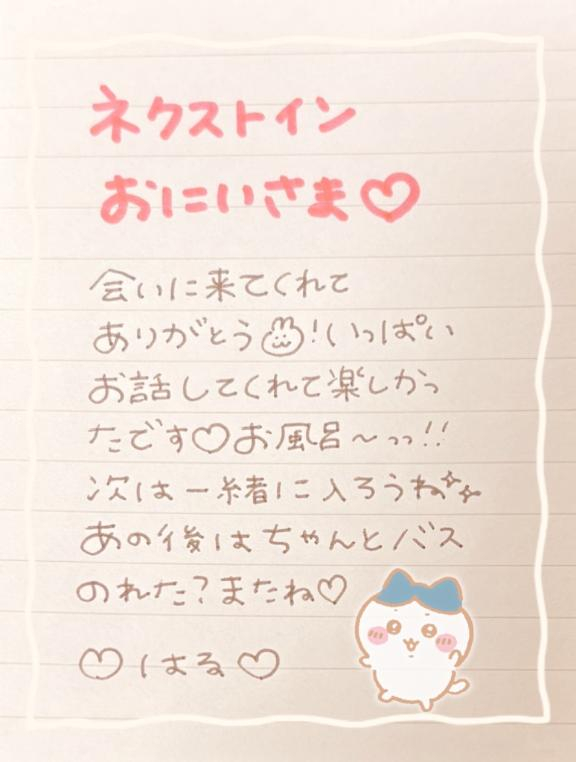 ネクストイン
おにいさま♡
会いに来てくれて
ありがとう!いっぱい
お話してくれて楽しかっ
たです♡お風呂〜っっ!!
次は一緒に入ろうね
あの後はちゃんとバス
のれた?またね♡
♡はる♡